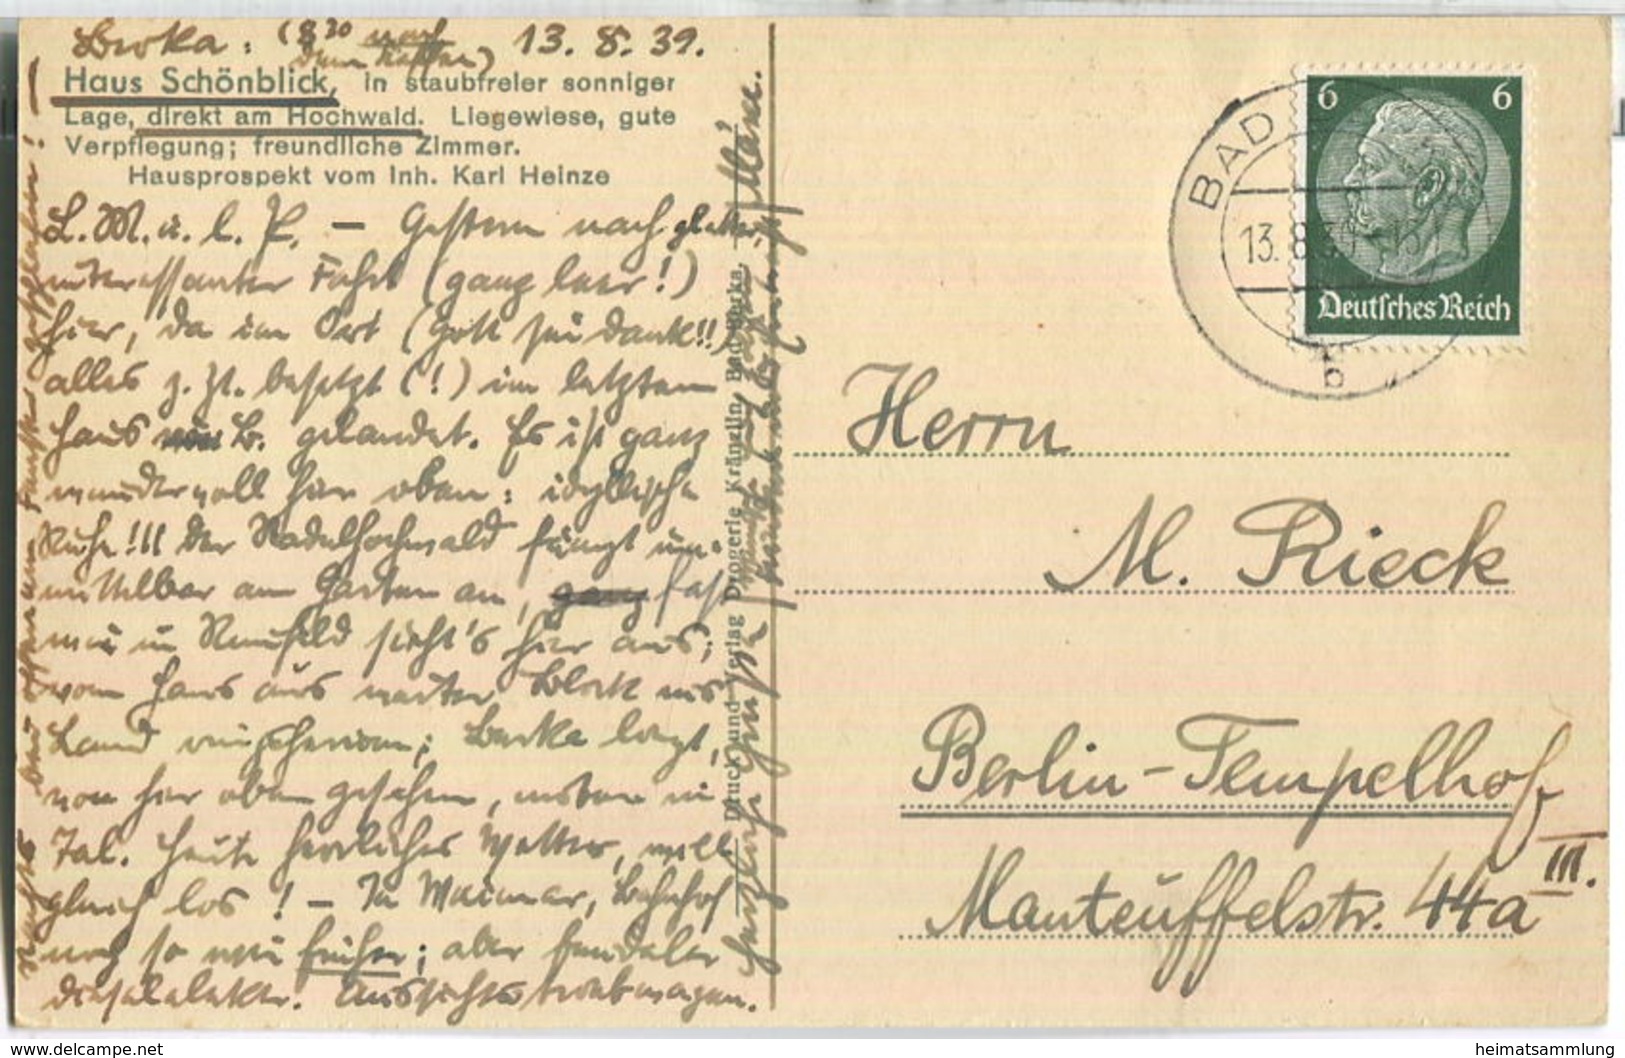 Berka: (8³⁰ nach
dem Kaffee) 13. 8. 39.
Haus Schönblick, in staubfreier sonniger
Lage, direkt am Hochwald. Liegewiese, gute
Verpflegung; freundliche Zimmer.
Hausprospekt vom Inh. Karl Heinze
L. M. u. l. P. – Gestern nach glatter,
interessanter Fahrt (ganz leer!)
hier, da im Ort (Gott sei dank!!)
alles z. Zt. besetzt (!) im letzten
Haus B. gelandet. Es ist ganz
wundervoll hier oben: idyllische
Ruhe!!! Der Nadelhochwald fängt un-
mittelbar am Garten an, ganz fast
wie in Neufeld sieht's hier aus;
vom Haus aus weiter Blick ins
Land ; Berka liegt,
von hier oben gesehen, unten im
Tal. Heute herrliches Wetter, will
gleich los! – In Weimar, Bahnhof
noch so wie früher; aber feudaler
Aussichtstriebwagen.
Nachts bei offenem Fenster geschlafen! –
Herzliche Grüße
Max.
Druck und Verlag Drogerie Kränzlin, Bad Berka
BAD
13.8.39
b
6 6
Deutsches Reich
Herrn
M. Rieck
Berlin-Tempelhof
Manteuffelstr. 44a III.
delcampe.net
heimatsammlung